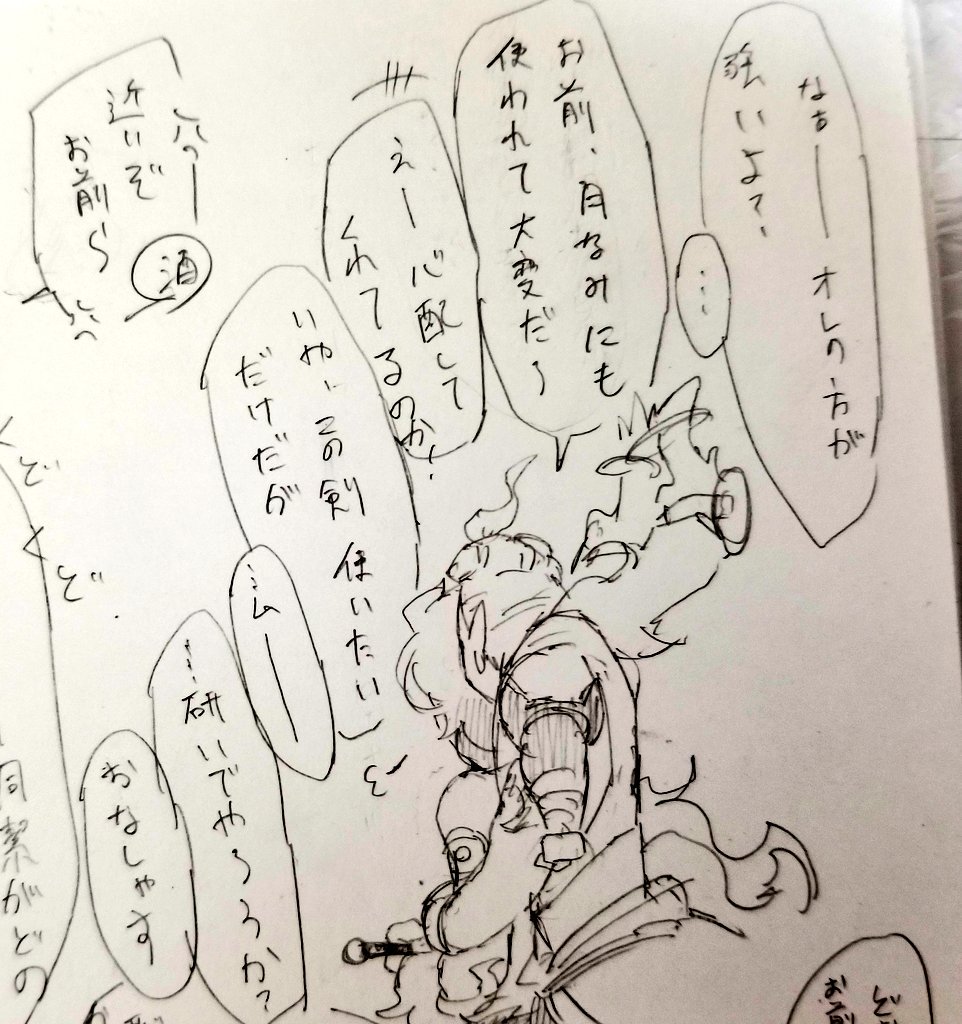 なぁーオレの方が
強いよ?
…
お前、月なみにも
使われて大変だろ
えー心配して
くれてるのか!
いや、この剣使いたい
だけだが
…ムー
…研いでやろうか?
おなしゃす
近いぞ
お前ら
酒
くど
くど
ど
お前